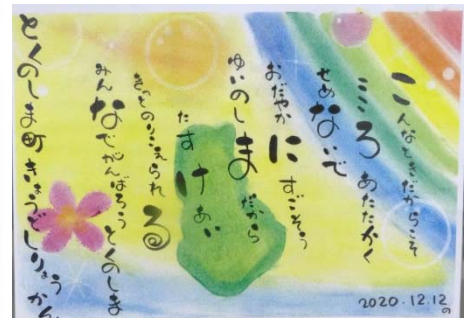 こんなときだからこそ
こころあたたかく
せめないで
おだやかにすごそう
ゆいのしまだから
たすけあい
きっとのりこえられる
みんなでがんばろうとくのしま
とくのしま町きょうどしりょうかん
2020.12.12の